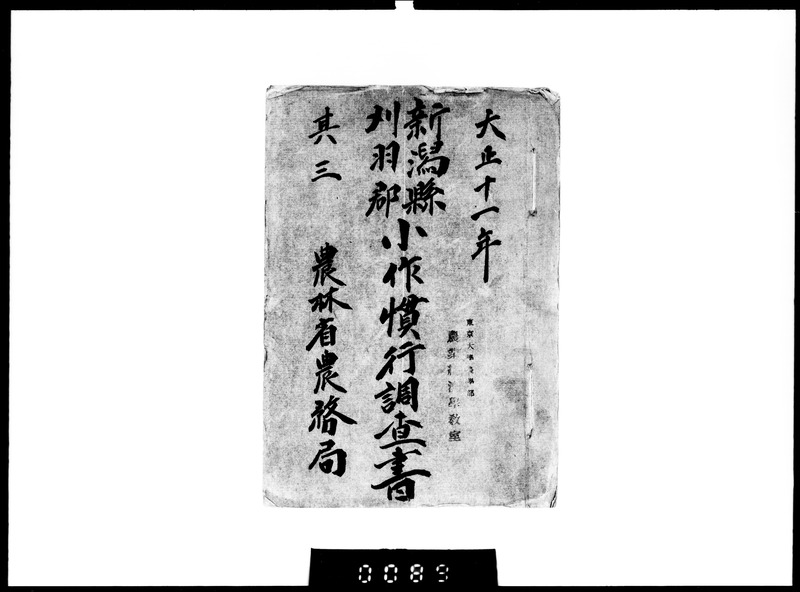 大正十一年
新潟縣
刈羽郡
小作慣行調査書
其三
農林省農務局
東京大學農學部
教室
0089